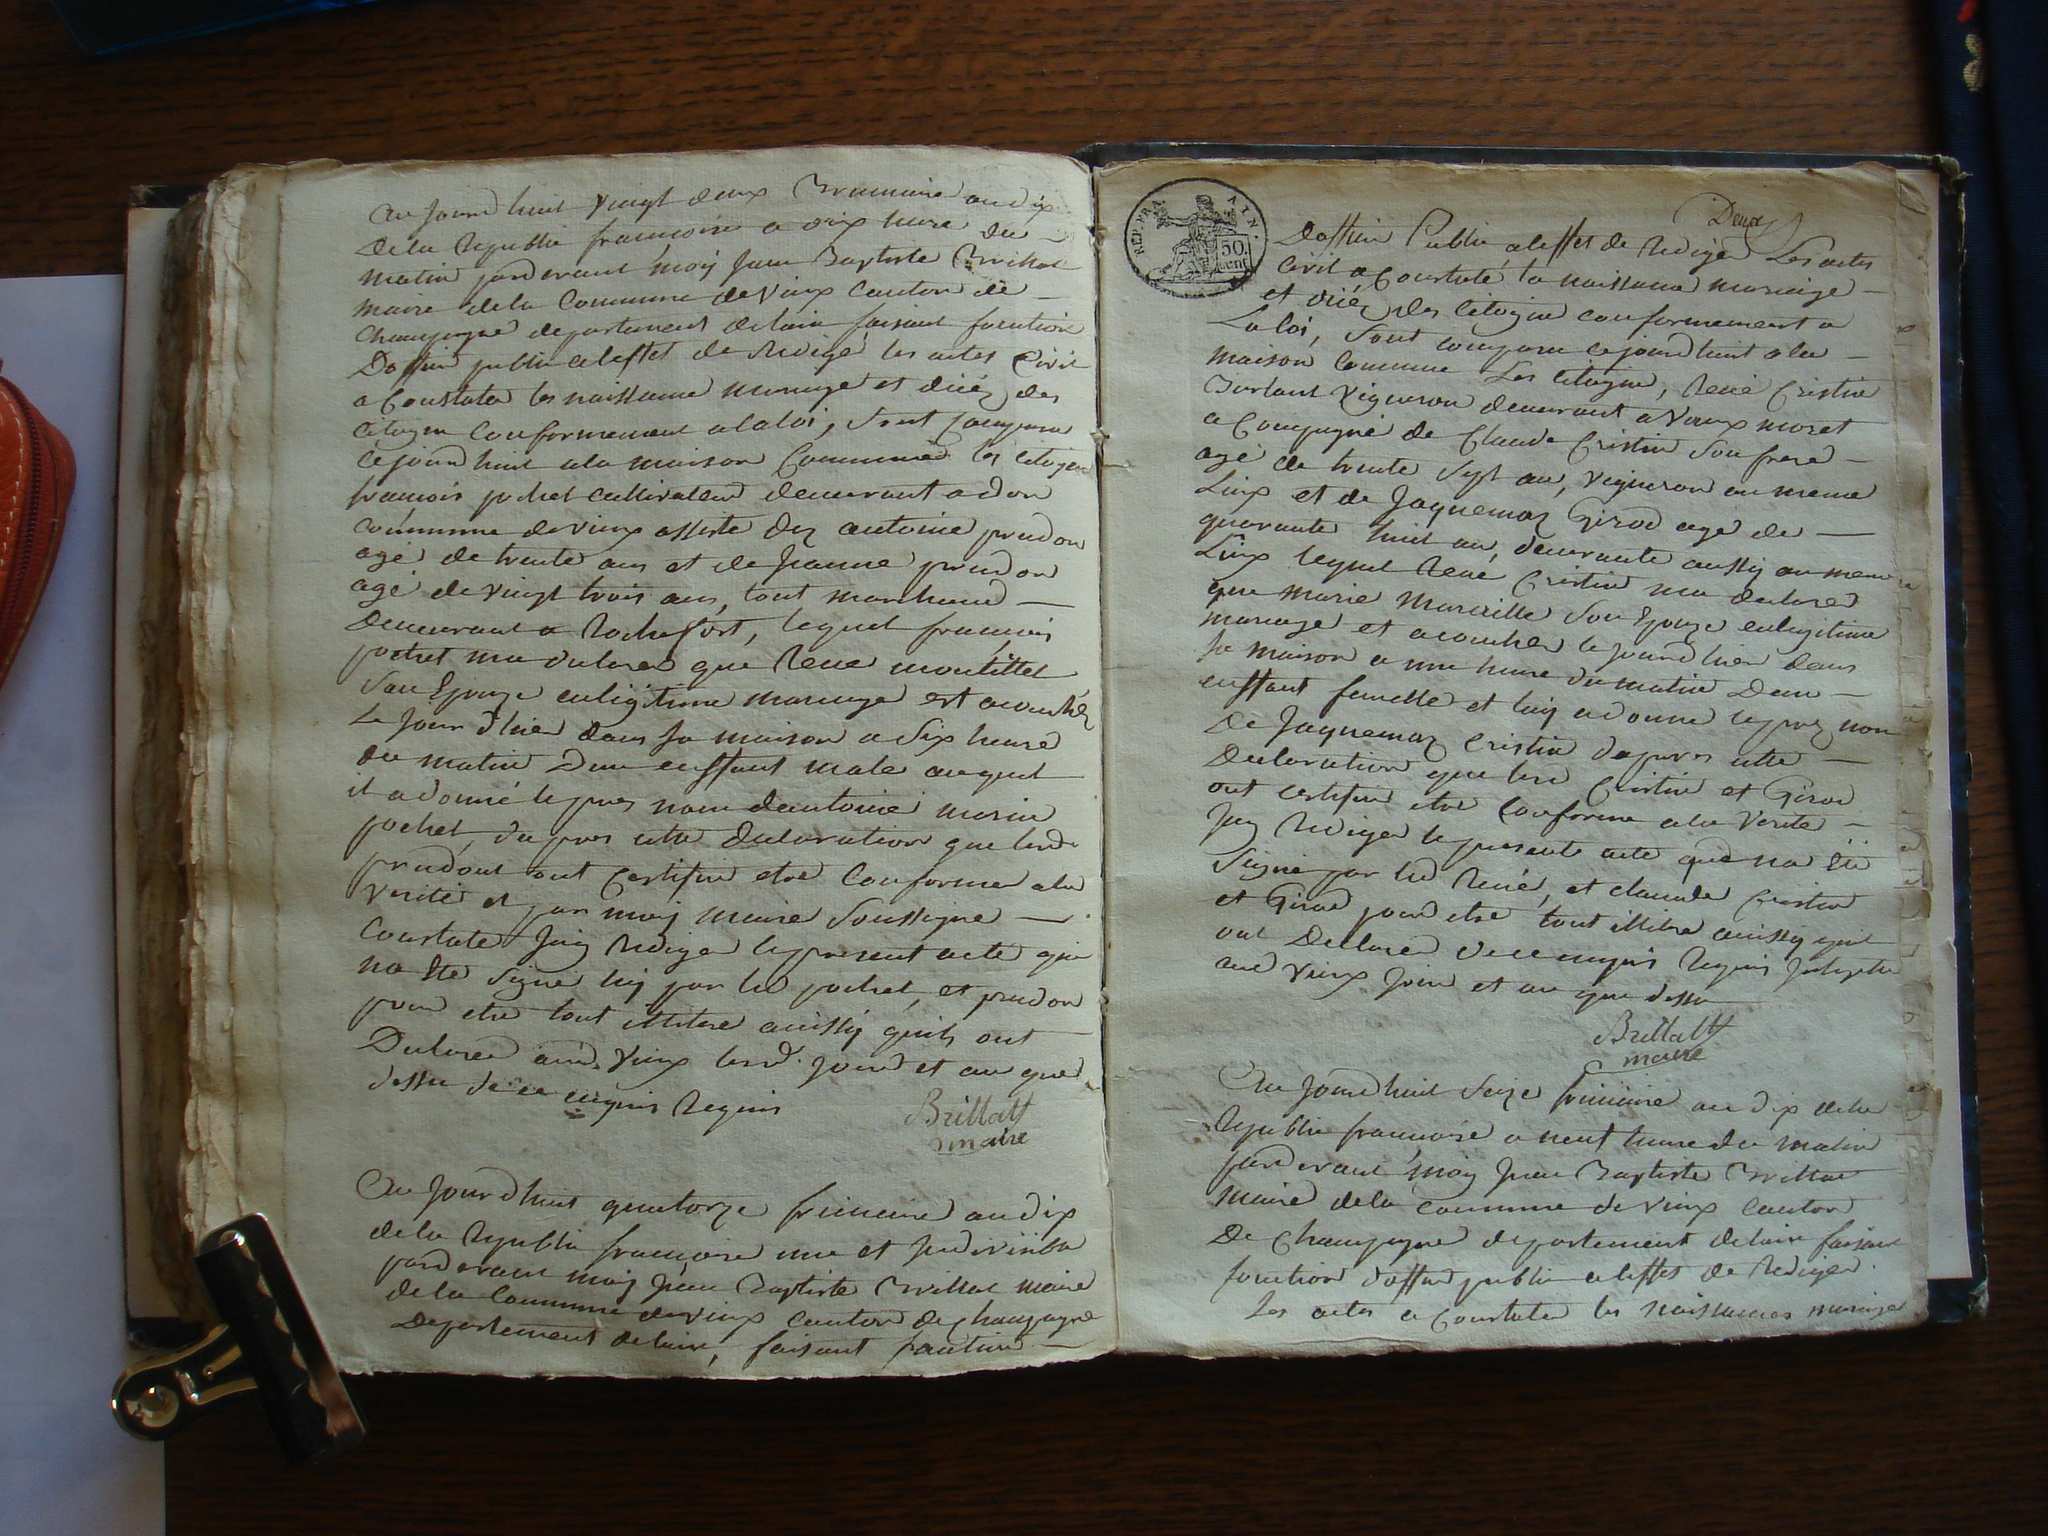 Au Jourd huit vingt deux Brumaire an dix
de la Republi francoise a dix hure du
matin pard evant moy Jean Baptiste Brillat
maire de la Commune de Vieux Canton de
Champagne departement de lain faisant fonction
Doffier public aleffet de Redigé les actes Civil
a Constater les naissance mariage et déces des
Citoyen Conformement a la loi, sont comparu
cejourd huit a la maison Commune les citoyen
francois pochet cultivateur demeurant a don
commune de vieux assiste dez antoine prudon
agé de trente ans et de Jeanne prudon
agé de vingt trois ans, tout marchand
Demeurant a Rochefort, lequel francois
pochet ma declarer que Rene montillet
Son Epouze enligitime mariage est acouchéz
Le jour d'hier dans sa maison a Six heure
du matin Dun enffant male auquel
il a donné leprez nom dantoine marin
pochet, dapres cette declaration que lesd.
prudont ont Certifier etre Conforme ala
Verité et par moy maire Soussigne
Constate Jaiy Redige lepresent acte qui
na Eté Signé par les pochet, et prudon
pour etre tout illitere ainssy quils ont
Declarer aud. Vieux lesd. Jour et an que
dessu de ce enquis Requis
Brillatt
maire
Au Jour d huit quatorze frimaire an dix
de la Republi françoise une et Indivisible
pard evant moy Jean Baptiste Brillat maire
de la Commune de Vieux Canton de Champagne
Departement de lain, faisant fonction
REP. FRA. AIN.
50 cent
Deux
Doffier Public, aleffet de Redigé Les actes
Civil a Constaté la naissance mariage
et décéz des Citoyen conformement a
La loi, Sont comparu cejourd huit a la
maison Commune Les Citoyen, René Cristin
Burlant Vigneron demeurant a Vaux moret
a Compagné de Claude Cristin Son frere
agé de trente Sept an, vigneron au meme
Lieux et de Jaquemaz Girod agé de
quarante huit an, demeurante aussy au meme
Lieux lequel René Cristin ma declarer
que Marie Son Epouze enlegitime
mariage et acoucher le jourd hier dans
sa maison a une heure du matin Dun
enffant femelle et luy a donne leprez nom
De Jaquemaz Cristin dapres cette
Declaration que les Cristin et Girod
ont certifier etre Conforme ala Verité
Jay Rediger lepresente acte qui na Eté
Signé par les René, et claude Cristin
et Girod pour etre tout illitere ainssy quil
ont Declarer de ce enquis Requis
aud Vieux Jour et an que dessu
Brillatt
maire
Au Jourd huit Seize frimaire an dix de la
Republi francoise a neuf heure du matin
pard evant moy Jean Baptiste Brillat
maire de la commune de Vieux Canton
De Champagne departement de lain faisant
fonction doffier public aleffet de Rediger
Les actes a Constater les naissances mariage